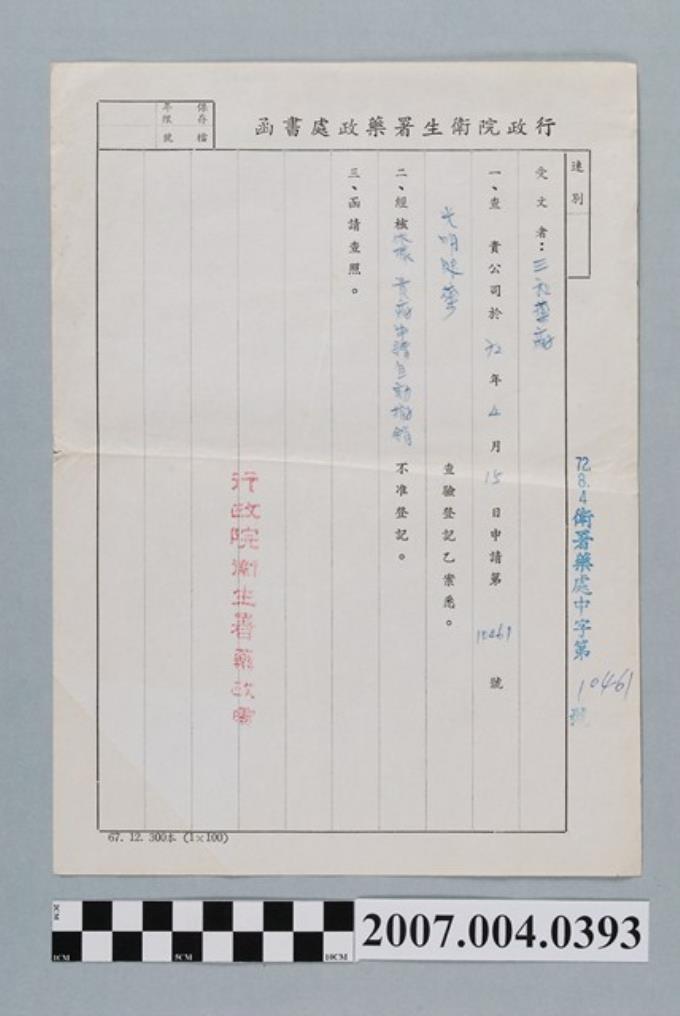 行政院衛生署藥政處書函
保存年限
檔號
速別
72.8.4 衛署藥處中字第10461號
受文者：三和藥廠
一、查 貴公司於 72 年 4 月 15 日申請第 10461 號
光明 查驗登記乙案悉。
二、經核依據 貴廠申請自動撤銷 不准登記。
三、函請查照。
行政院衛生署藥政處
67. 12. 300本 (1×100)
1CM
1CM
5CM
10CM
2007.004.0393